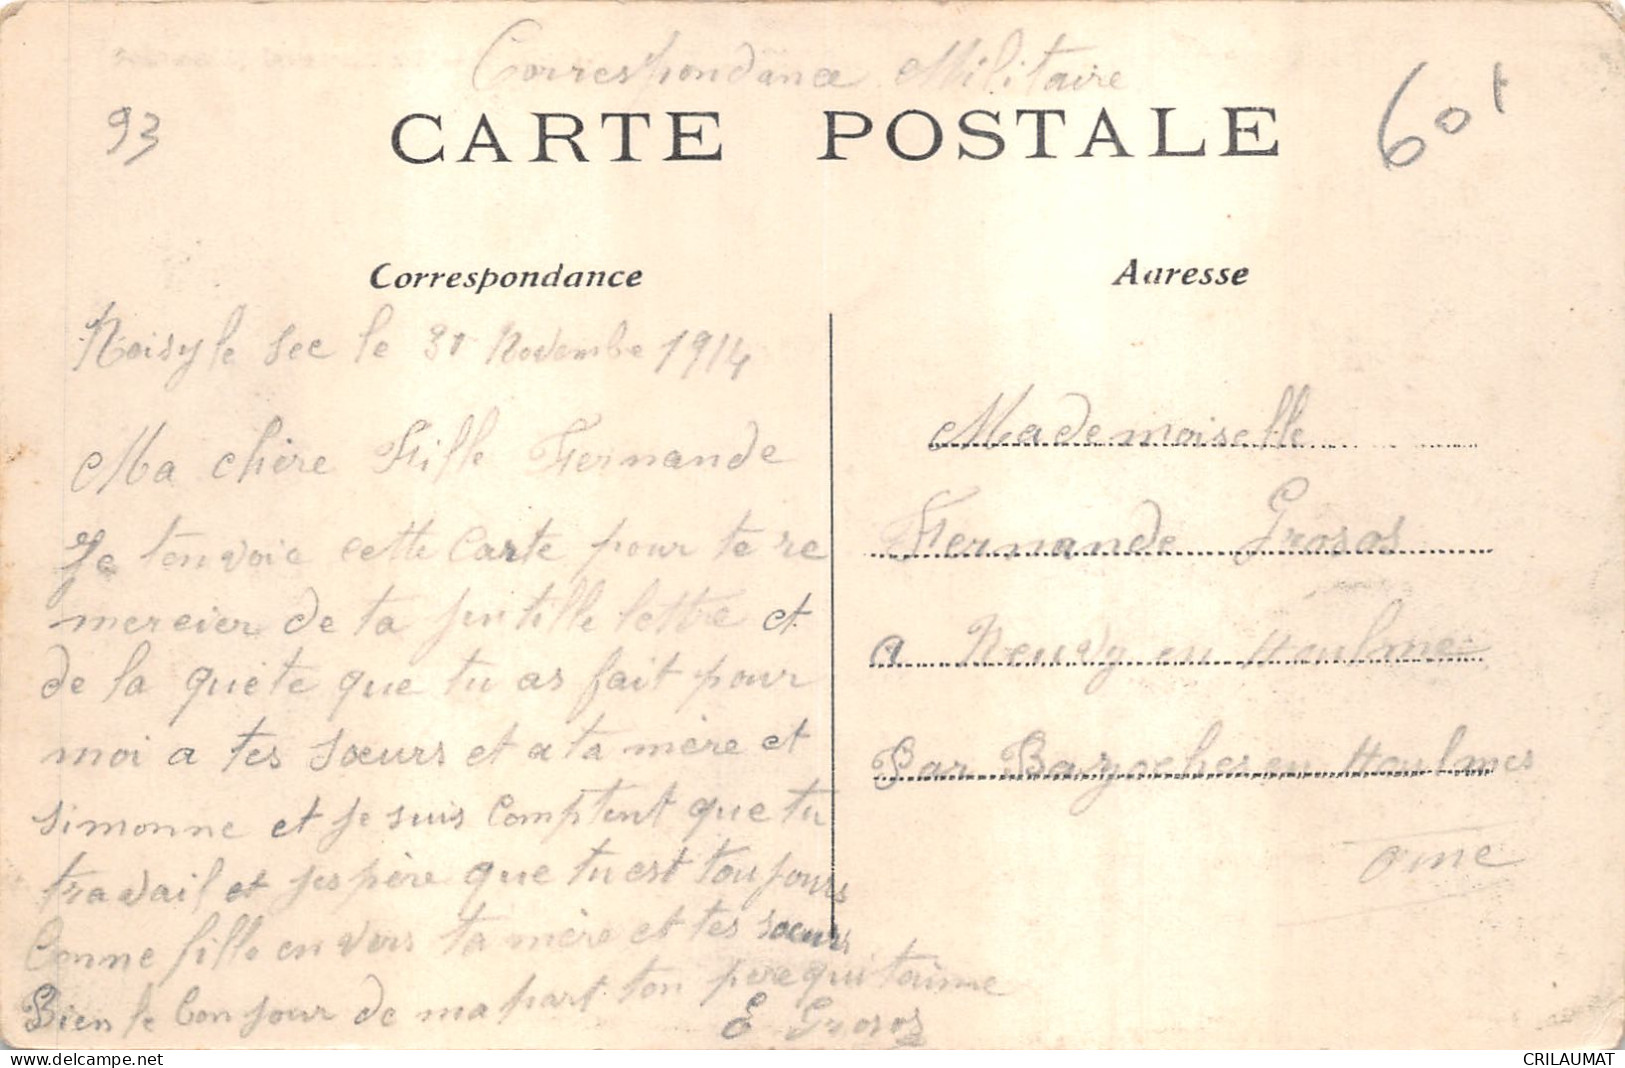 Correspondance Militaire
93
CARTE POSTALE
60 t
Correspondance
Noisy le sec le 31 Novembe 1914
Ma chère Fille Fernande
Je tenvoie cette Carte pour te re
mercier de ta jentille lettre et
de la quete que tu as fait pour
moi a tes sœurs et a ta mère et
simonne et je suis Comptent que tu
travail et jespère que tu est toujours
Bonne fille en vers ta mère et tes sœurs
Bien le Bonjour de ma part ton pere qui taime
E Grosos
Adresse
Mademoiselle
Fernande Grosos
a Neuvy en Houlme
Par Bazoches en Houlmes
orne
CRILAUMAT